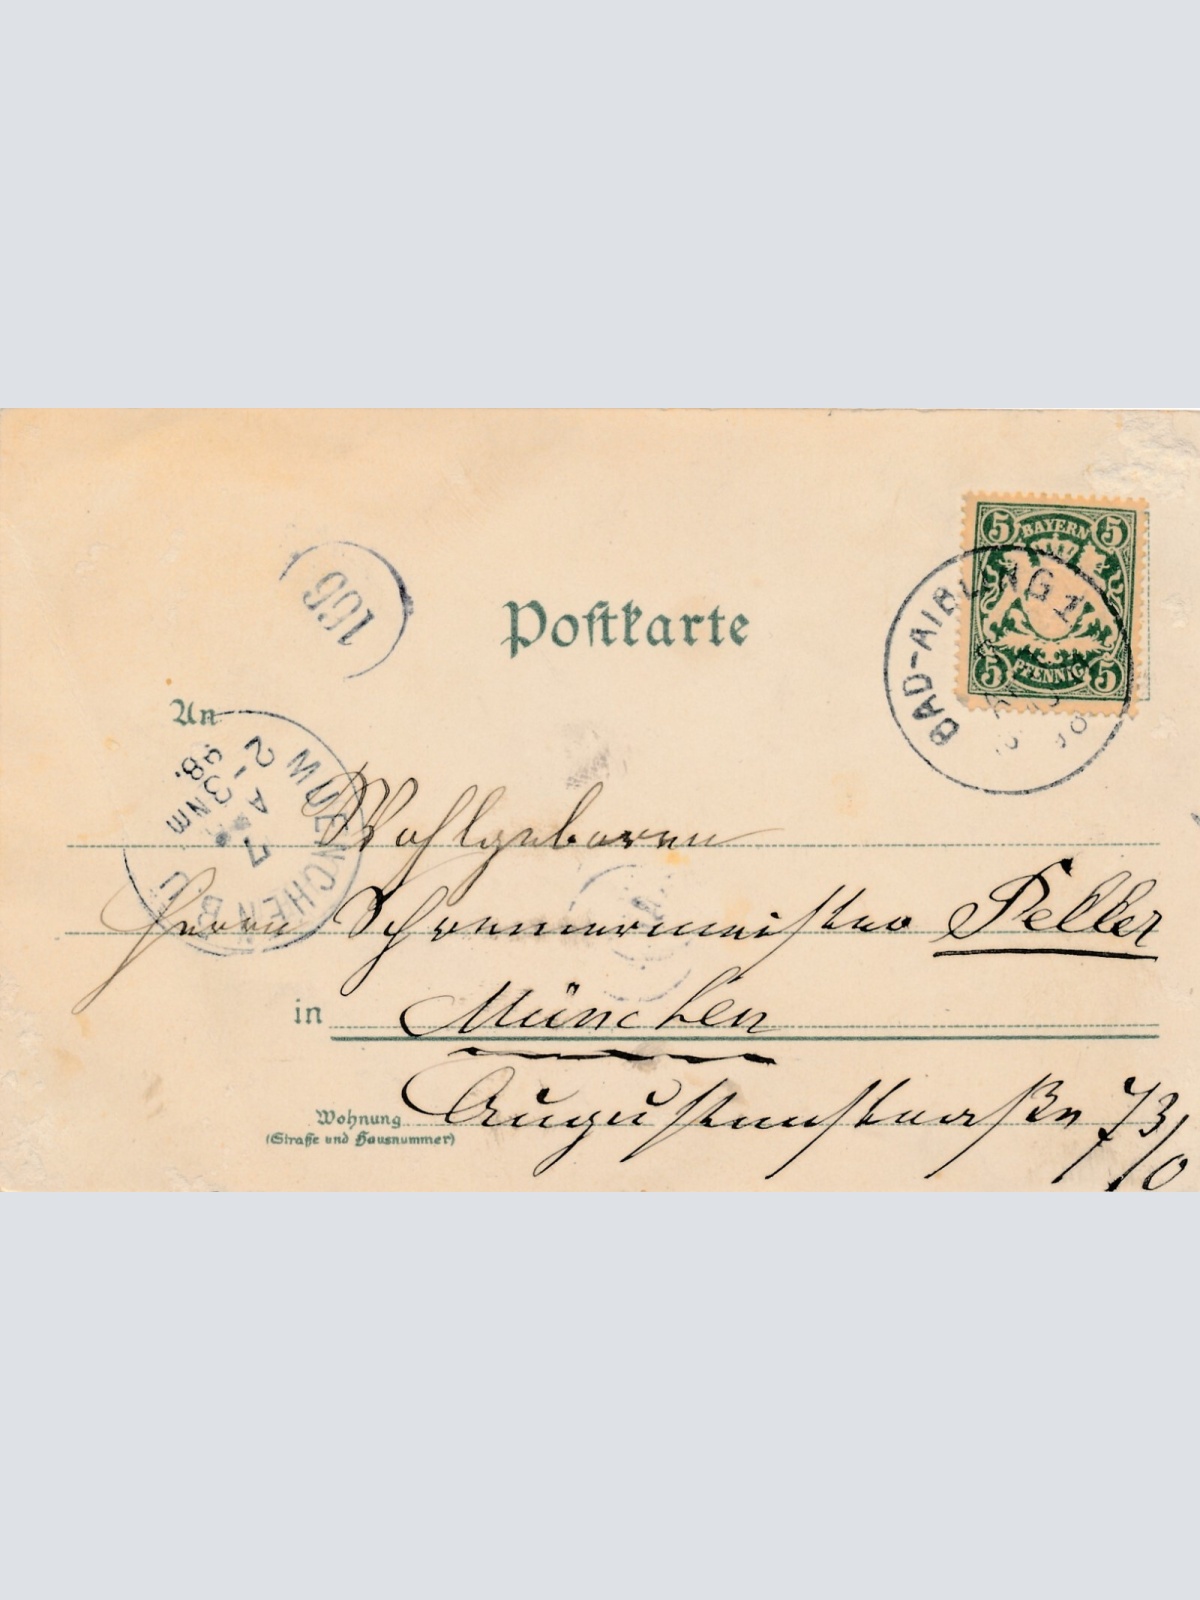 Postkarte
5 BAYERN 5
5 PFENNIG 5
BAD-AIBLING I
166
An
MUENCHEN B.
7 A 2-3 Nm
98.
Wohlgeboren
Herrn Schreinermeister Peller
in München
Wohnung
(Straße und Hausnummer)
Augustenstraße 73/0